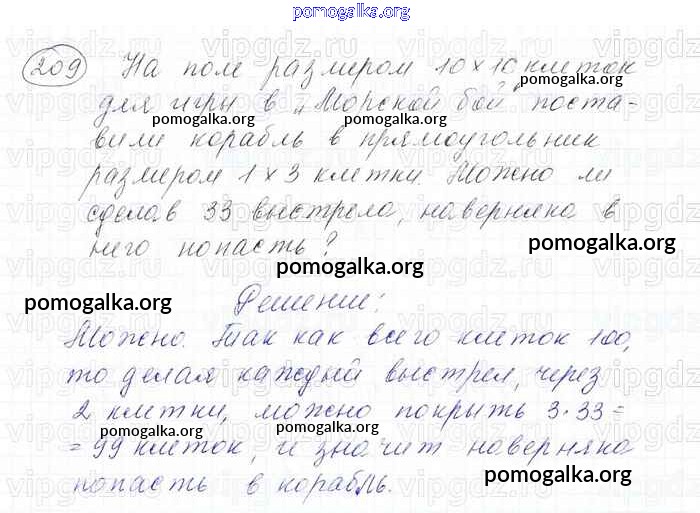 pomogalka.org
209 На поле размером 10×10 клеток
pomogalka.org
для игры в „Морской бой" поста-
pomogalka.org pomogalka.org
вили корабль в прямоугольник
размером 1×3 клетки. Можно ли
сделав 33 выстрела, наверняка в
него попасть?
pomogalka.org
pomogalka.org
pomogalka.org
Решение:
Можно. Так как всего клеток 100,
то делая каждый выстрел, через
2 клетки, можно покрыть 3·33=
pomogalka.org pomogalka.org
= 99 клеток, и значит наверняка
попасть в корабль.
pomogalka.org
pomogalka.org